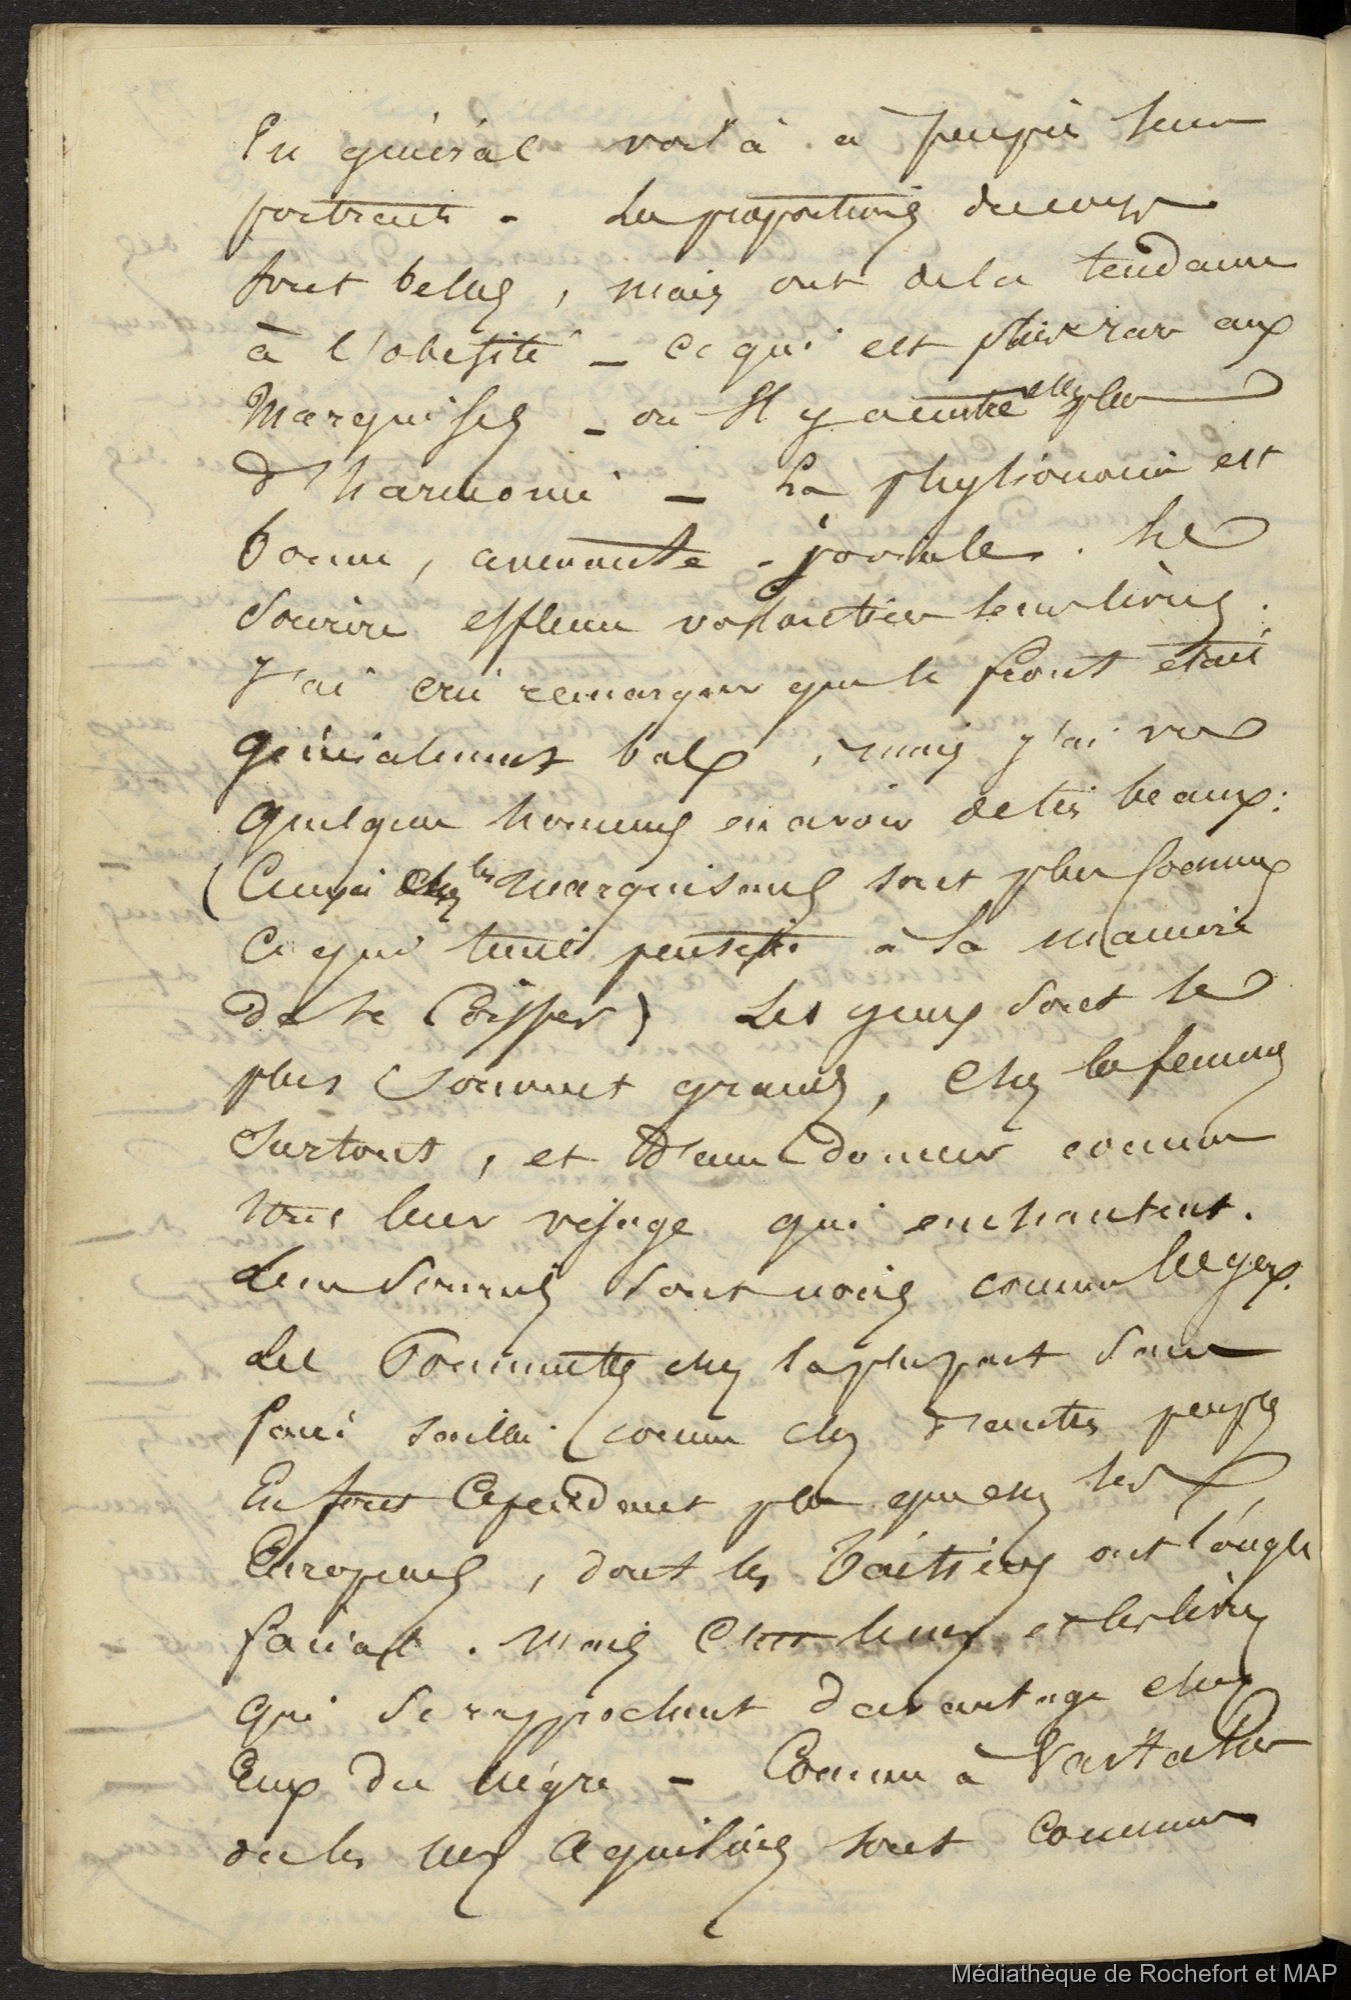 En général voilà à peuprès leur
portraits - Les proportions du corps
sont belles, mais ont de la tendance
à l'obésité - ce qui est plus rare aux
Marquises - ou Il y a entre elles plus
d'harmonie - La physionomie est
bonne, aimante - joviale. Le
Sourire effleure volontier leurs lèvres.
J'ai cru remarquer que le front était
généralement bas, mais j'ai vu
quelques hommes en avoir de très beaux:
(Ceux chez les Marquisans sont plus
ce qui tient peut être à la manière
de se Coiffer) Les yeux sont le
plus Souvent grands, Chez les femmes
Surtout, et d'une douceur comme
tous leur visage qui enchantent.
Leur Sourcils Sont noirs comme les yeux.
Les Pommettes chez la plupart Sans
saillie comme chez d'autres peuples
En sont Cependant plus que chez les
Européens, dont les ont l'angle
facial. Mais leurs nez et les lèvres
qui Se rapprochent davantage chez
Eux du nègre - Comme à
ou les nez Aquilins sont Communs
Médiathèque de Rochefort et MAP